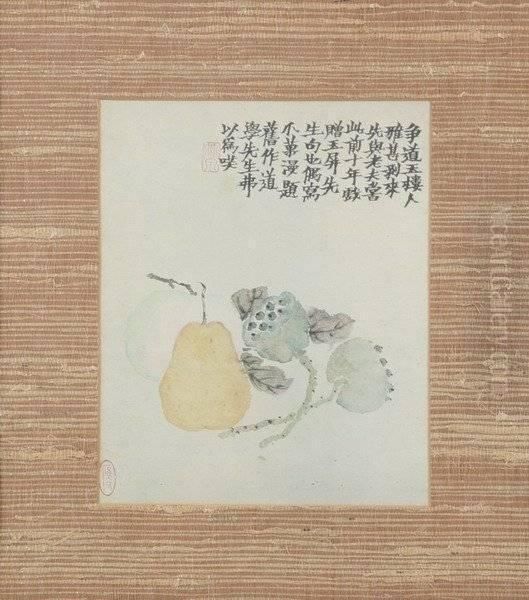 争道玉樓人
雅甚剥來
先與老夫當
此前十年戲
贈玉屏先
生句也偶寫
不第漫題
舊作道
學先生弗
以為哂